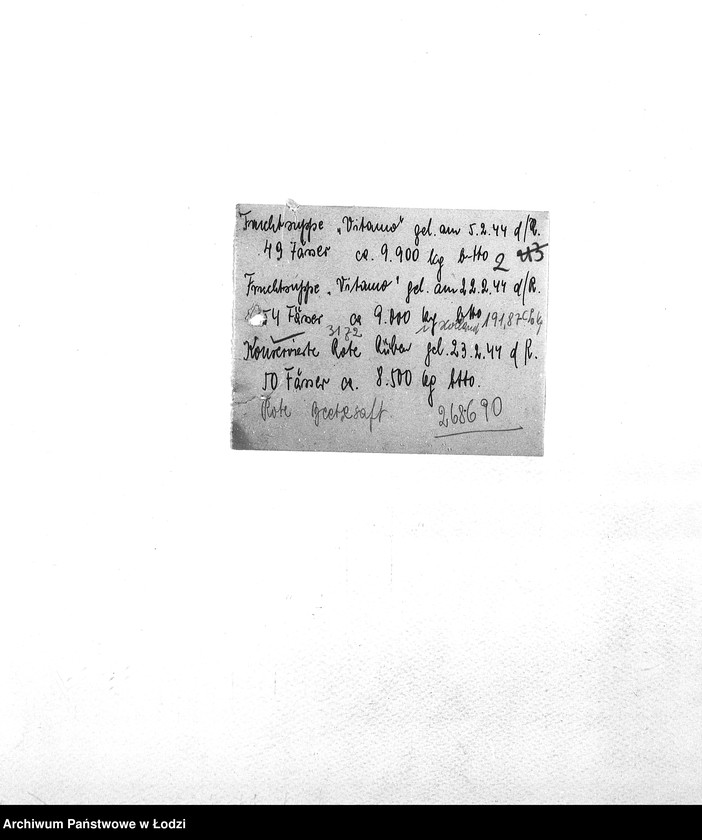 Fruchtsuppe „Vitamo" gel. am 5.2.44 d/R.
49 Fässer ca. 9.900 kg btto 2
Fruchtsuppe „Vitamo" gel. am 22.2.44 d/R.
54 Fässer ca 9.000 kg btto 191,87
3172
Konservierte Rote Rüben gel. 23.2.44 d R.
50 Fässer ca. 8.500 kg btto.
Rote Beetesaft 268690
Archiwum Państwowe w Łodzi